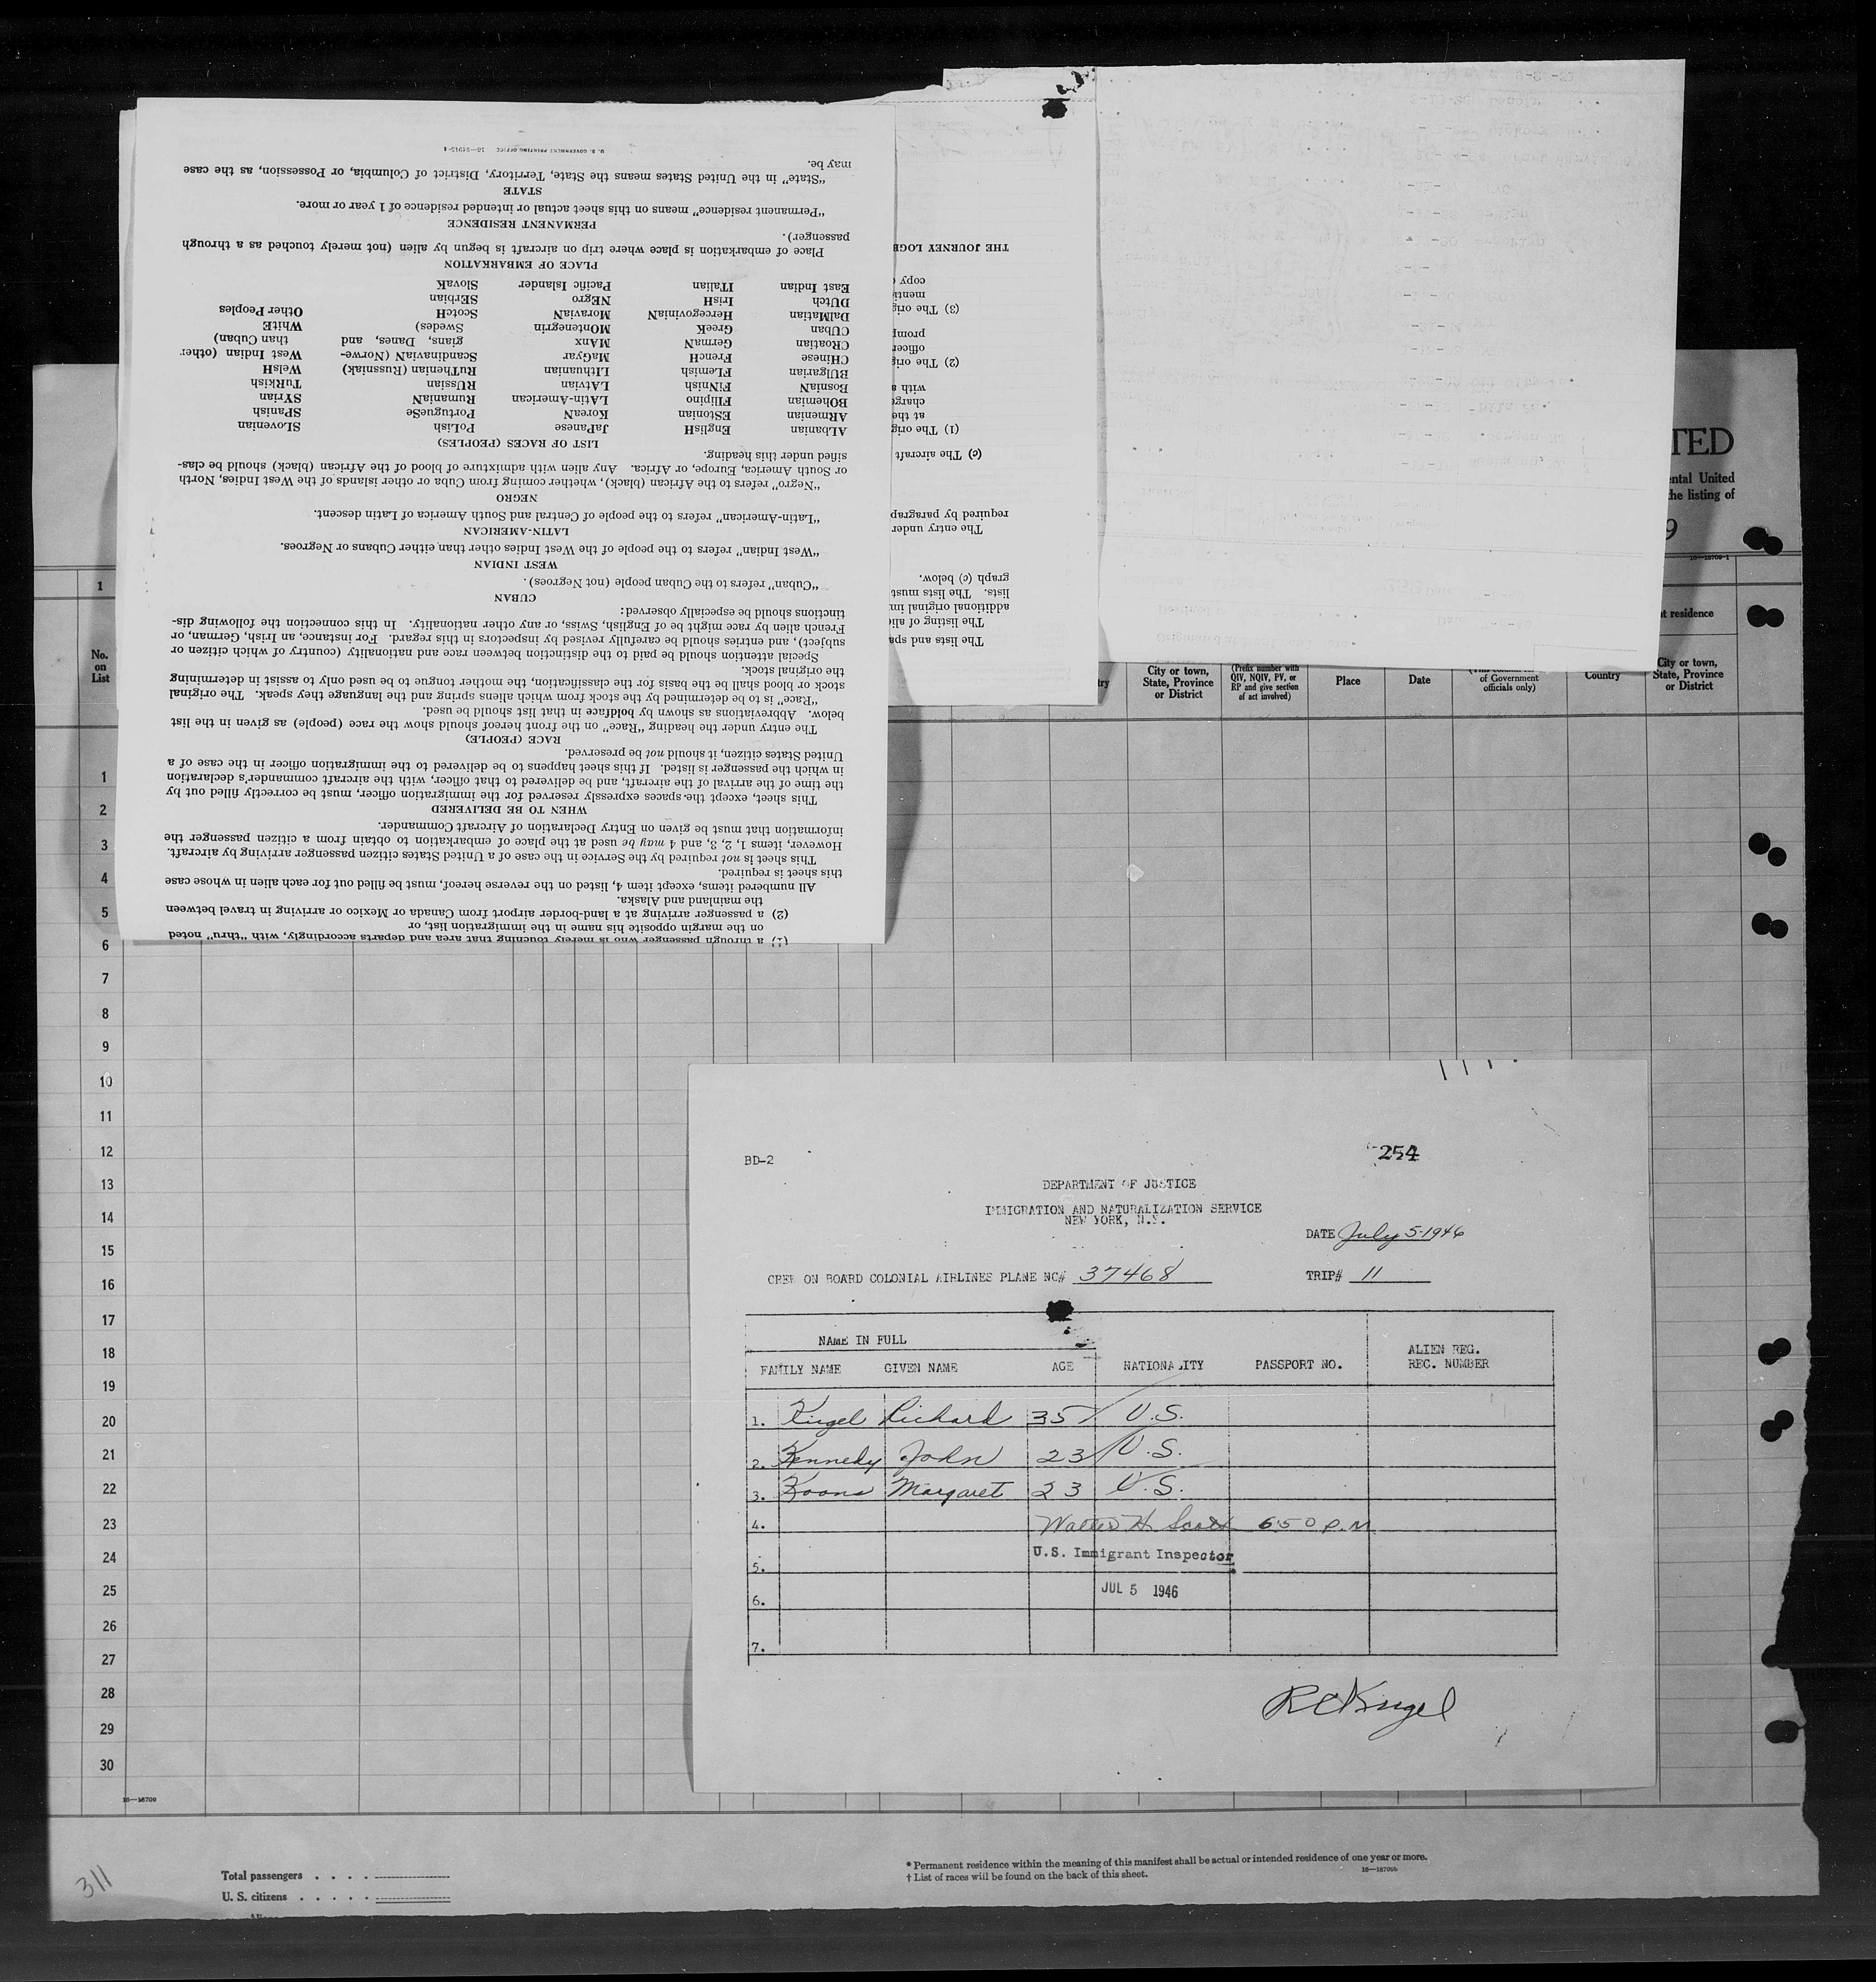 (1) a through passenger who is merely touching that area and departs accordingly, with “thru” noted
on the margin opposite his name in the immigration list, or
(2) a passenger arriving at a land-border airport from Canada or Mexico or arriving in travel between
the mainland and Alaska.
All numbered items, except item 4, listed on the reverse hereof, must be filled out for each alien in whose case
this sheet is required.
This sheet is not required by the Service in the case of a United States citizen passenger arriving by aircraft.
However, items 1, 2, 3, and 4 may be used at the place of embarkation to obtain from a citizen passenger the
information that must be given on Entry Declaration of Aircraft Commander.
WHEN TO BE DELIVERED
This sheet, except the spaces expressly reserved for the immigration officer, must be correctly filled out by
the time of the arrival of the aircraft, and be delivered to that officer, with the aircraft commander's declaration
in which the passenger is listed. If this sheet happens to be delivered to the immigration officer in the case of a
United States citizen, it should not be preserved.
RACE (PEOPLE)
The entry under the heading “Race” on the front hereof should show the race (people) as given in the list
below. Abbreviations as shown by boldface in that list should be used.
“Race” is to be determined by the stock from which aliens spring and the language they speak. The original
stock or blood shall be the basis for the classification, the mother tongue to be used only to assist in determining
the original stock.
Special attention should be paid to the distinction between race and nationality (country of which citizen or
subject), and entries should be carefully revised by inspectors in this regard. For instance, an Irish, German, or
French alien by race might be of English, Swiss, or any other nationality. In this connection the following dis-
tinctions should be especially observed:
CUBAN
“Cuban” refers to the Cuban people (not Negroes).
WEST INDIAN
“West Indian” refers to the people of the West Indies other than either Cubans or Negroes.
LATIN-AMERICAN
“Latin-American” refers to the people of Central and South America of Latin descent.
NEGRO
“Negro” refers to the African (black), whether coming from Cuba or other islands of the West Indies, North
or South America, Europe, or Africa. Any alien with admixture of blood of the African (black) should be clas-
sified under this heading.
LIST OF RACES (PEOPLES)
ALbanian ENglisH JaPanese PoLish SLOvenian
ARmenian EStonian KoreaN PortugueSe SPanish
BOhemian FIlipino LAtin-American RumaniaN SYrian
BosniaN FiNnish LAtvian RUssian TuRkish
BUlgarian FLemish LIthuanian RuThenian (Russniak) WelsH
CHinese FrencH MaGyar ScandinaviaN (Norwe- West Indian (other
CRoatian GermaN MAnx gians, Danes, and than Cuban)
CUban GreeK MOntenegrin Swedes) WHitE
DalMatian HercegoviniaN MoraviaN ScotcH Other Peoples
DUtch IrisH NEgro SErbian
East Indian ITalian Pacific Islander SlovaK
PLACE OF EMBARKATION
Place of embarkation is place where trip on aircraft is begun by alien (not merely touched as a through
passenger).
PERMANENT RESIDENCE
“Permanent residence” means on this sheet actual or intended residence of 1 year or more.
STATE
“State” in the United States means the State, Territory, District of Columbia, or Possession, as the case
may be.
U. S. GOVERNMENT PRINTING OFFICE
The lists and spa
The listing of alie
additional original im
lists. The lists must
graph (c) below.
The entry under
required by paragrap
(c) The aircraft
(1) The orig
at the
charge
with a
(2) The orig
officer
promp
(3) The orig
menti
copy
THE JOURNEY LOGB
TED
ental United
the listing of
9
16—18709-1
1
t residence
No.
on
List
try
City or town,
State, Province
or District
(Prefix number with
QIV, NQIV, PV, or
RP and give section
of act involved)
Place
Date
of Government
officials only)
Country
City or town,
State, Province
or District
1
2
3
4
5
6
7
8
9
10
11
12
13
14
15
16
17
18
19
20
21
22
23
24
25
26
27
28
29
30
16—18709
BD-2
254
DEPARTMENT OF JUSTICE
IMMIGRATION AND NATURALIZATION SERVICE
NEW YORK, N.Y.
DATE July 5-1946
CREW ON BOARD COLONIAL AIRLINES PLANE NC# 37468
TRIP# 11
NAME IN FULL
FAMILY NAME GIVEN NAME AGE NATIONALITY PASSPORT NO. ALIEN REG.
REC. NUMBER
1. Kugel Richard 35 U.S.
2. Kennedy John 23 U.S.
3. Koons Margaret 23 U.S.
4. Walter H. Scott 650 P.M
U.S. Immigrant Inspector
5.
JUL 5 1946
6.
7.
RCKugel
311
Total passengers . . . .
U. S. citizens . . . . .
* Permanent residence within the meaning of this manifest shall be actual or intended residence of one year or more.
† List of races will be found on the back of this sheet.
16—18709b